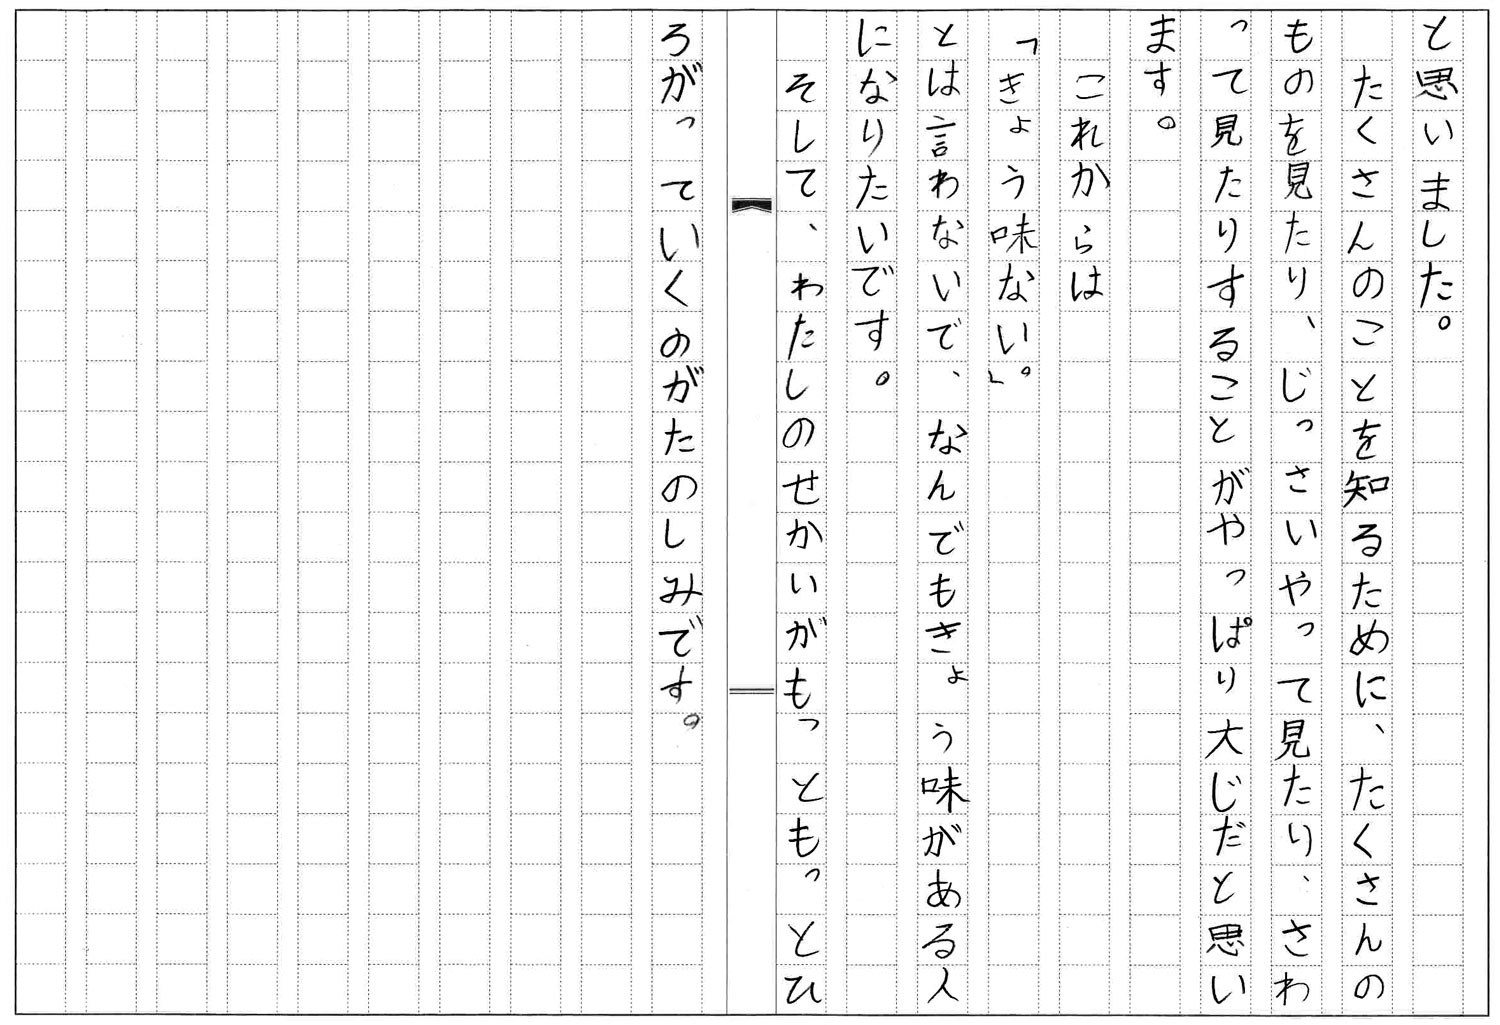 と思いました。
たくさんのことを知るために、たくさんの
ものを見たり、じっさいやって見たり、さわ
って見たりすることがやっぱり大じだと思い
ます。
これからは
「きょう味ない。」
とは言わないで、なんでもきょう味がある人
になりたいです。
そして、わたしのせかいがもっともっとひ
ろがっていくのがたのしみです。